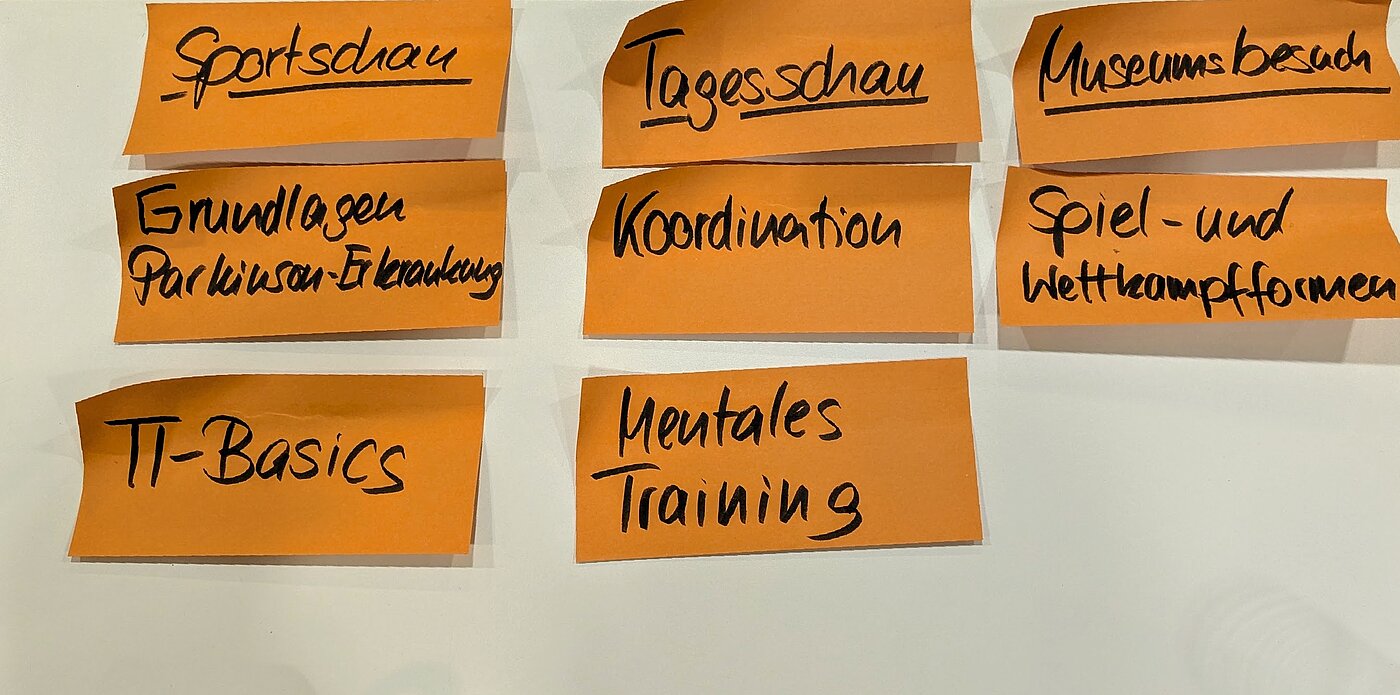 Sportschau
Tagesschau
Museumsbesuch
Grundlagen
Parkinson-Erkrankung
Koordination
Spiel- und
Wettkampfformen
TT-Basics
Mentales
Training